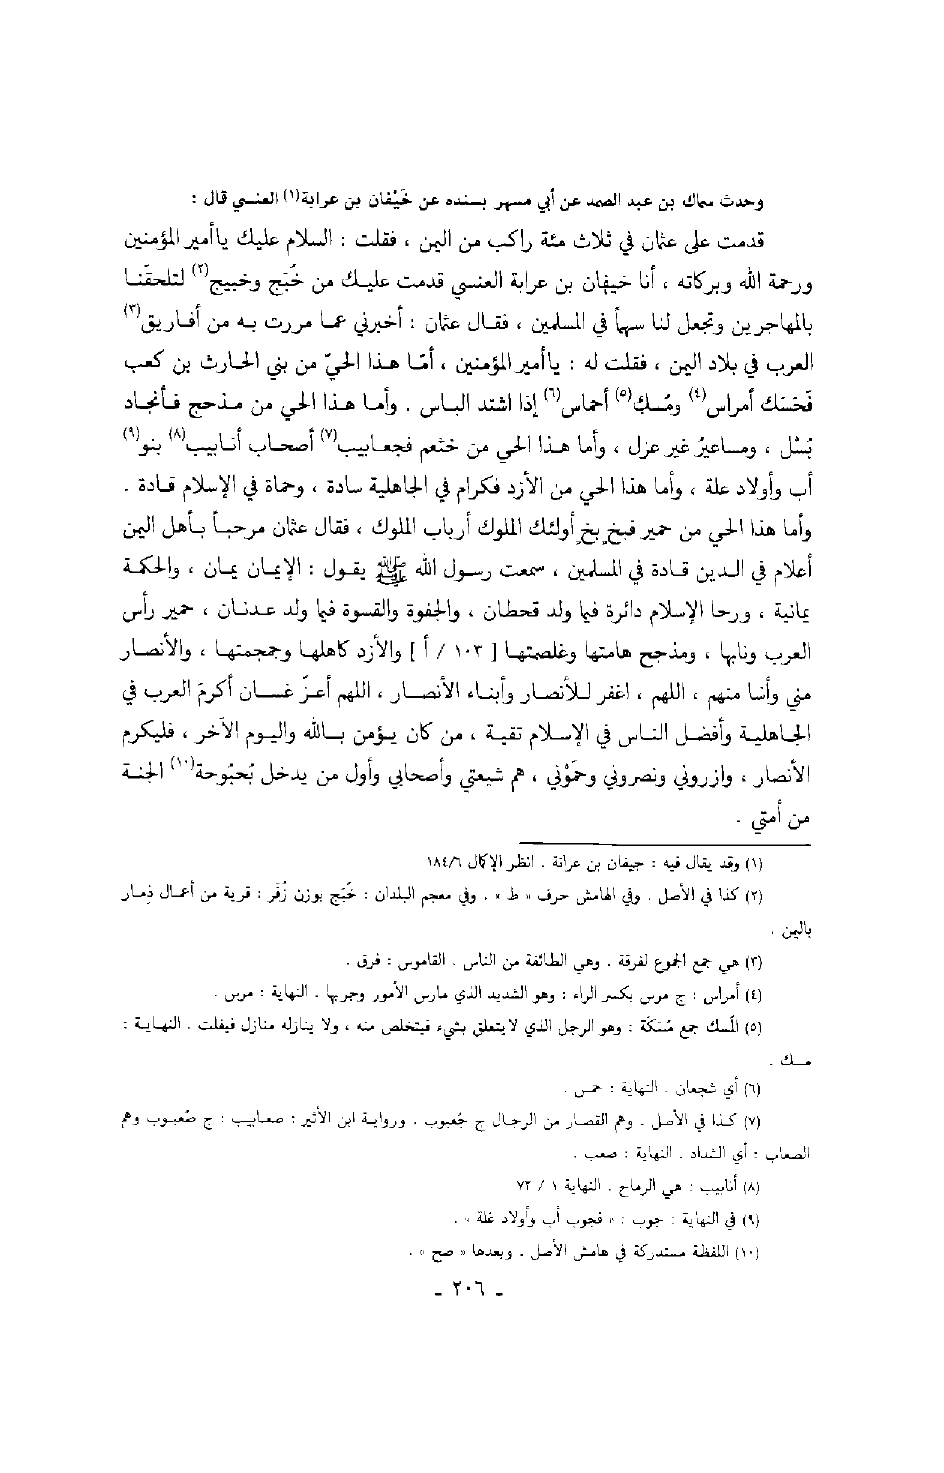 وحدث سماك بن عبد الصمد عن أبي مسهر بسنده عن خَيْفان بن عرابة(١) العنسي قال :
قدمت على عثمان في ثلاث مئة راكب من اليمن ، فقلت : السلام عليك ياأمير المؤمنين
ورحمة الله وبركاته ، أنا خيفان بن عرابة العنسي قدمت عليك من خُبَج وخبيج(٢) لتلحقَنا
بالمهاجرين وتجعل لنا سهماً في المسلمين ، فقال عثمان : أخبرني عما مررت به من أفاريق(٣)
العرب في بلاد اليمن ، فقلت له : ياأمير المؤمنين ، أمّا هذا الحيّ من بني الحارث بن كعب
فَحَسَك أمراس(٤) ومُسَك(٥) أحماس(٦) إذا اشتد البأس . وأما هذا الحي من مذحج فأنجاد
بُسُل ، ومساعيرُ غير عزل ، وأما هذا الحي من خثعم فجعابيب(٧) أصحاب أنابيب(٨) بنو(٩)
أب وأولاد علة ، وأما هذا الحي من الأزد فكرام في الجاهلية سادة ، وحماة في الإسلام قادة .
وأما هذا الحي من حمير فبخٍ بخٍ أولئك الملوك أرباب الملوك ، فقال عثمان مرحباً بأهل اليمن
أعلام في الدين قادة في المسلمين ، سمعت رسول الله ﷺ يقول : الإيمان يمان ، والحكمة
يمانية ، ورحا الإسلام دائرة فيما ولد قحطان ، والجفوة والقسوة فيما ولد عدنان ، حمير رأس
العرب ونابها ، ومذحج هامتها وغلصمتها [ ١٠٣ / أ ] والأزد كاهلها وجمجمتها ، والأنصار
مني وأنا منهم ، اللهم ، اغفر للأنصار وأبناء الأنصار ، اللهم أعزّ غسان أكرمَ العرب في
الجاهلية وأفضل الناس في الإسلام تقية ، من كان يؤمن بالله واليوم الآخر ، فليكرم
الأنصار ، وازروني ونصروني وحَمَوْني ، هم شيعتي وأصحابي وأول من يدخل بُحبُوحة(١٠) الجنة
من أمتي .
(١) وقد يقال فيه : جيفان بن عرانة . انظر الإكمال ١٨٤/٦
(٢) كذا في الأصل . وفي الهامش حرف « ط » . وفي معجم البلدان : خَبَج بوزن زُفَر : قرية من أعمال ذمار
باليمن .
(٣) هي جمع الجموع لفرقة . وهي الطائفة من الناس . القاموس : فرق .
(٤) أمراس : ج مرس بكسر الراء : وهو الشديد الذي مارس الأمور وجربها . النهاية : مرس .
(٥) المُسك جمع مُسَكَة : وهو الرجل الذي لا يتعلق بشيء فيتخلص منه ، ولا ينازله منازل فيفلت . النهاية :
مسك .
(٦) أي شجعان . النهاية : حمس .
(٧) كذا في الأصل . وهم القصار من الرجال ج جُعبوب . ورواية ابن الأثير : صعابيب : ج صُعبوب وهم
الصعاب : أي الشداد . النهاية : صعب .
(٨) أنابيب : هي الرماح . النهاية ١ / ٧٢
(٩) في النهاية : جوب : « فجوب أب وأولاد علة » .
(١٠) اللفظة مستدركة في هامش الأصل . وبعدها « صح » .
- ٢٠٦ -